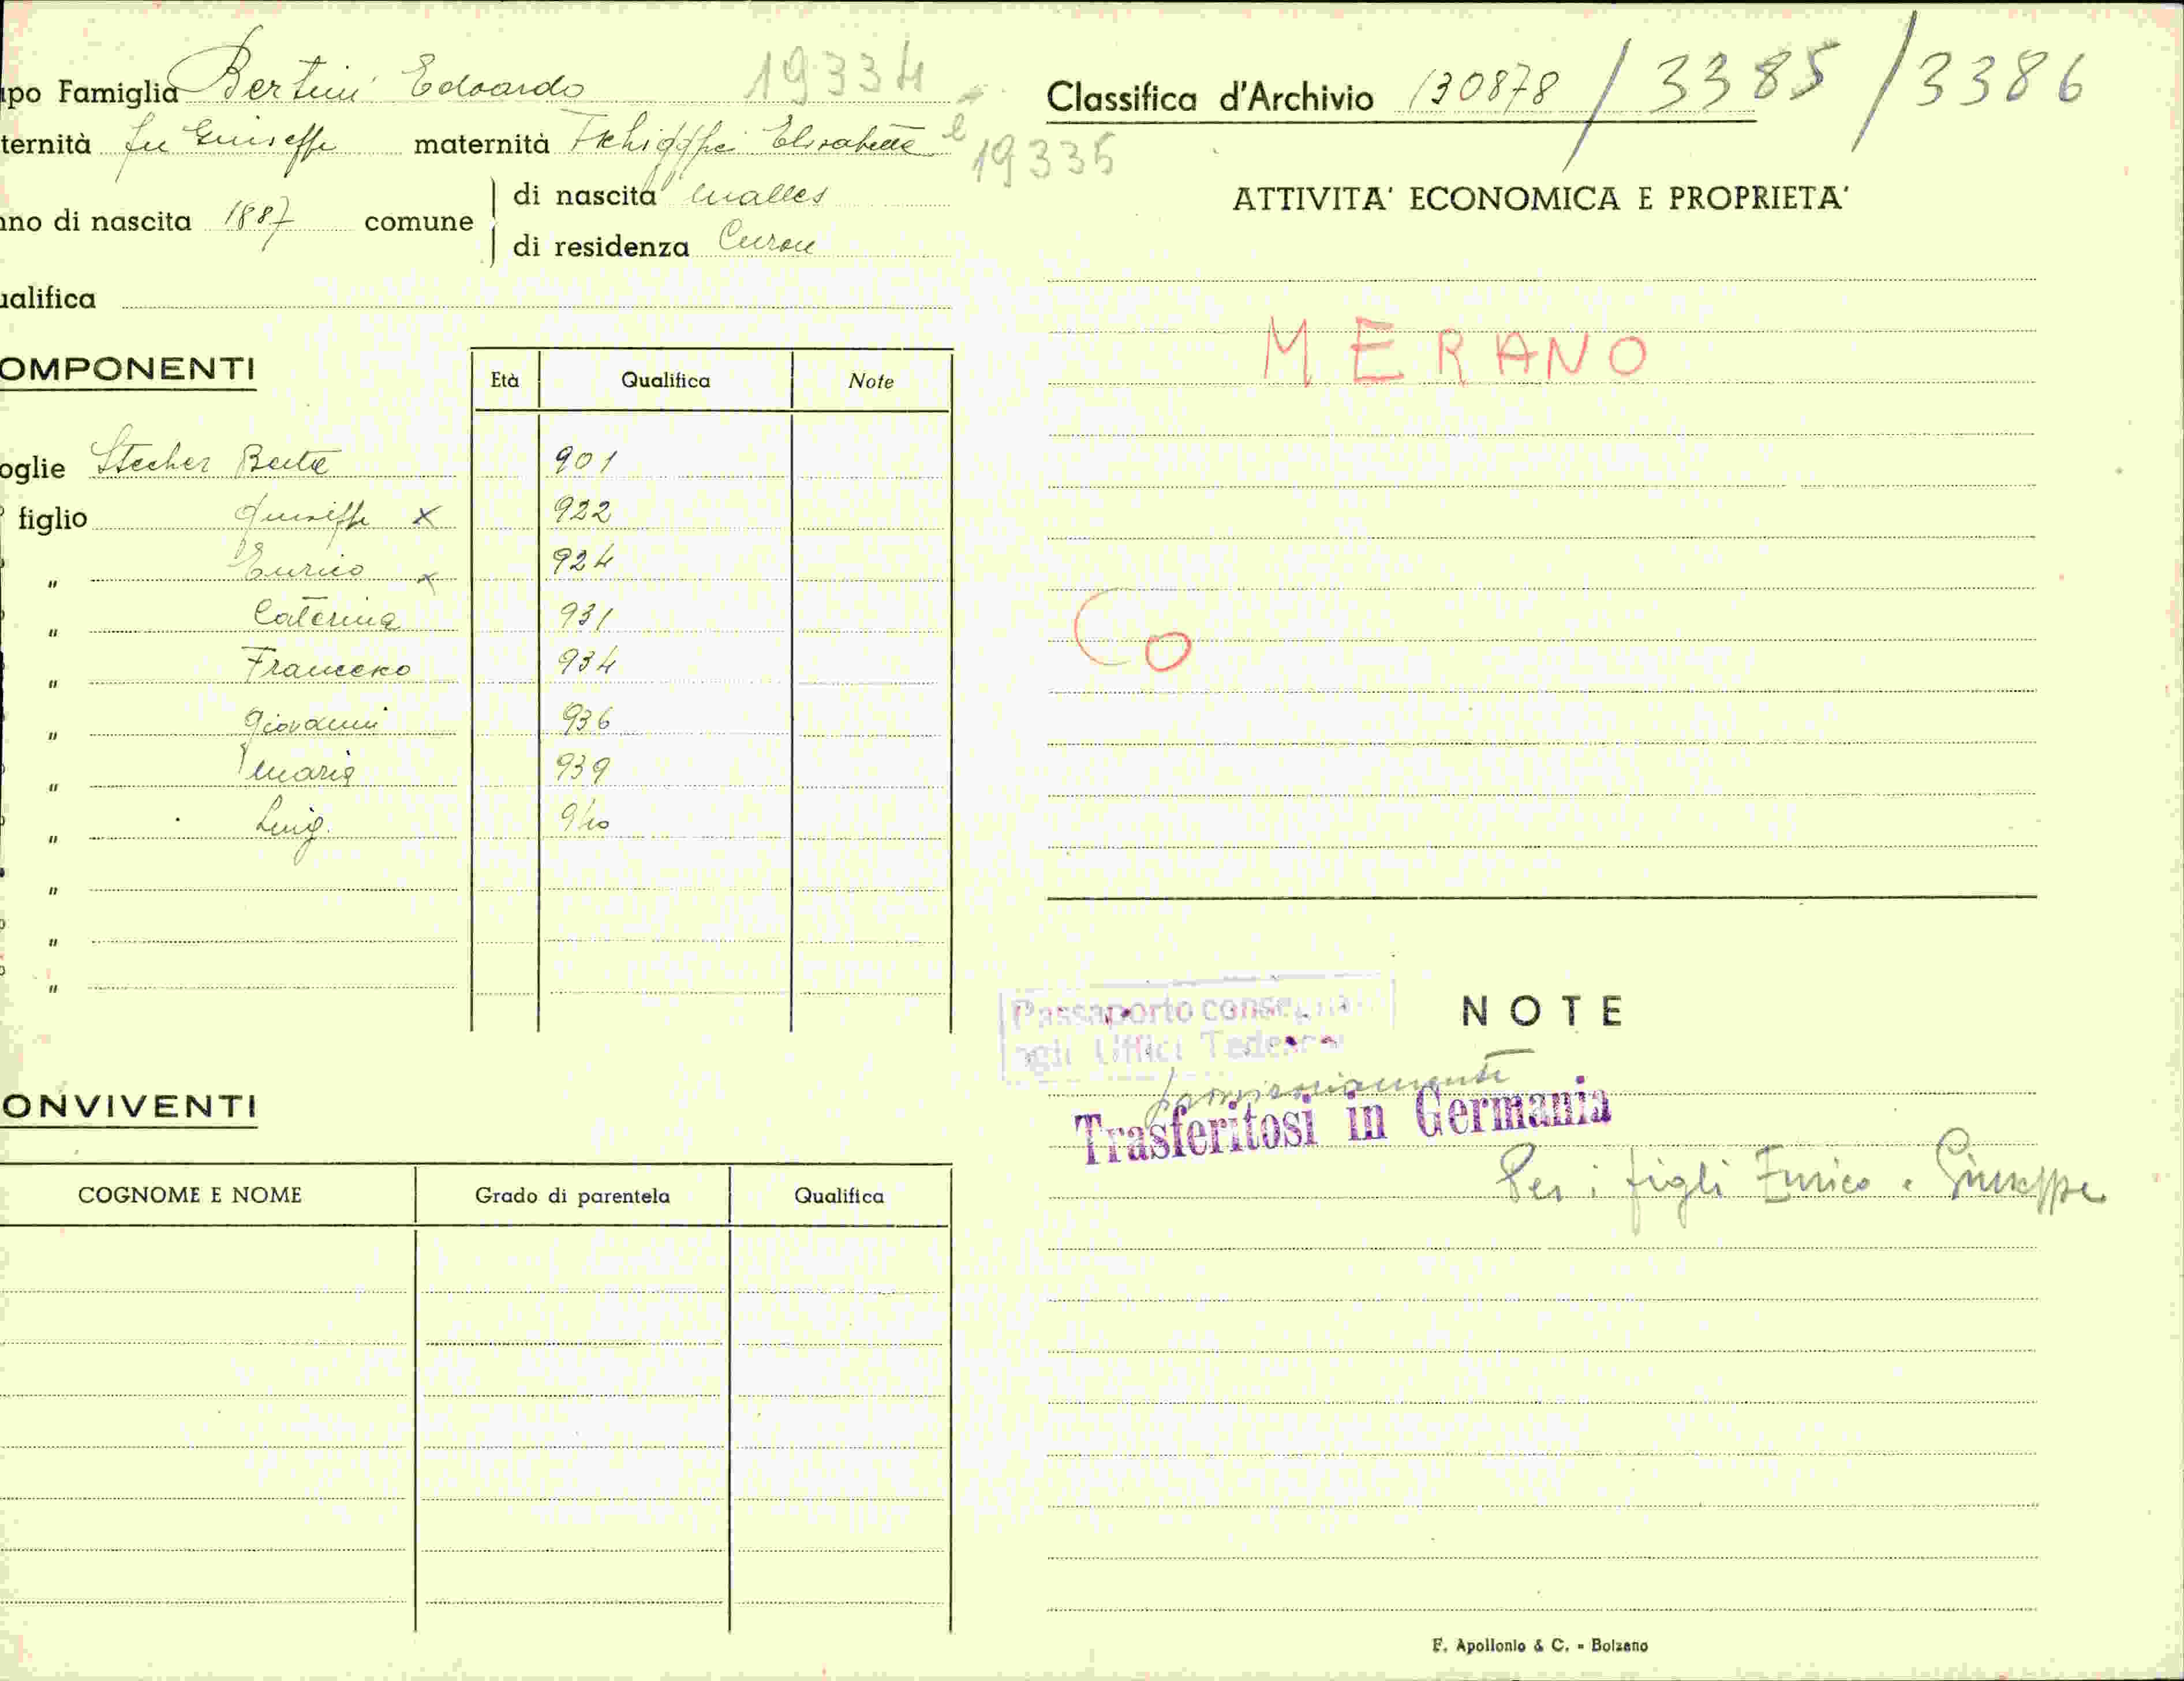 apo Famiglia Bertini Edoardo 19334 e 19335
ternità fu Giuseppe maternità Elisabetta
nno di nascita 1887 comune di nascita Malles
di residenza Curon
ualifica
OMPONENTI
Età Qualifica Note
oglie Stecher Berta 901
figlio Giuseppe x 922
" Enrico x 924
" Caterina 931
" Francesco 934
" Giovanni 936
" Maria 939
" Luigi 940
"
"
"
ONVIVENTI
COGNOME E NOME Grado di parentela Qualifica
Classifica d'Archivio 130878 / 3385 / 3386
ATTIVITA' ECONOMICA E PROPRIETA'
MERANO
Co
Passaporto consegnato
agli Uffici Tedeschi
NOTE
provvisoriamente
Trasferitosi in Germania
Per i figli Enrico e Giuseppe
F. Apollonio & C. - Bolzano